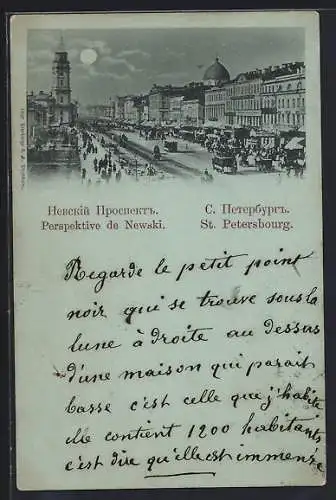 Невскій Проспектъ.
Perspektive de Newski.
С. Петербургъ.
St. Petersbourg.
Regarde le petit point
noir qui se trouve sous la
lune à droite au dessus
d'une maison qui parait
basse c'est celle que j'habite
elle contient 1200 habitants
c'est dire qu'elle est immense